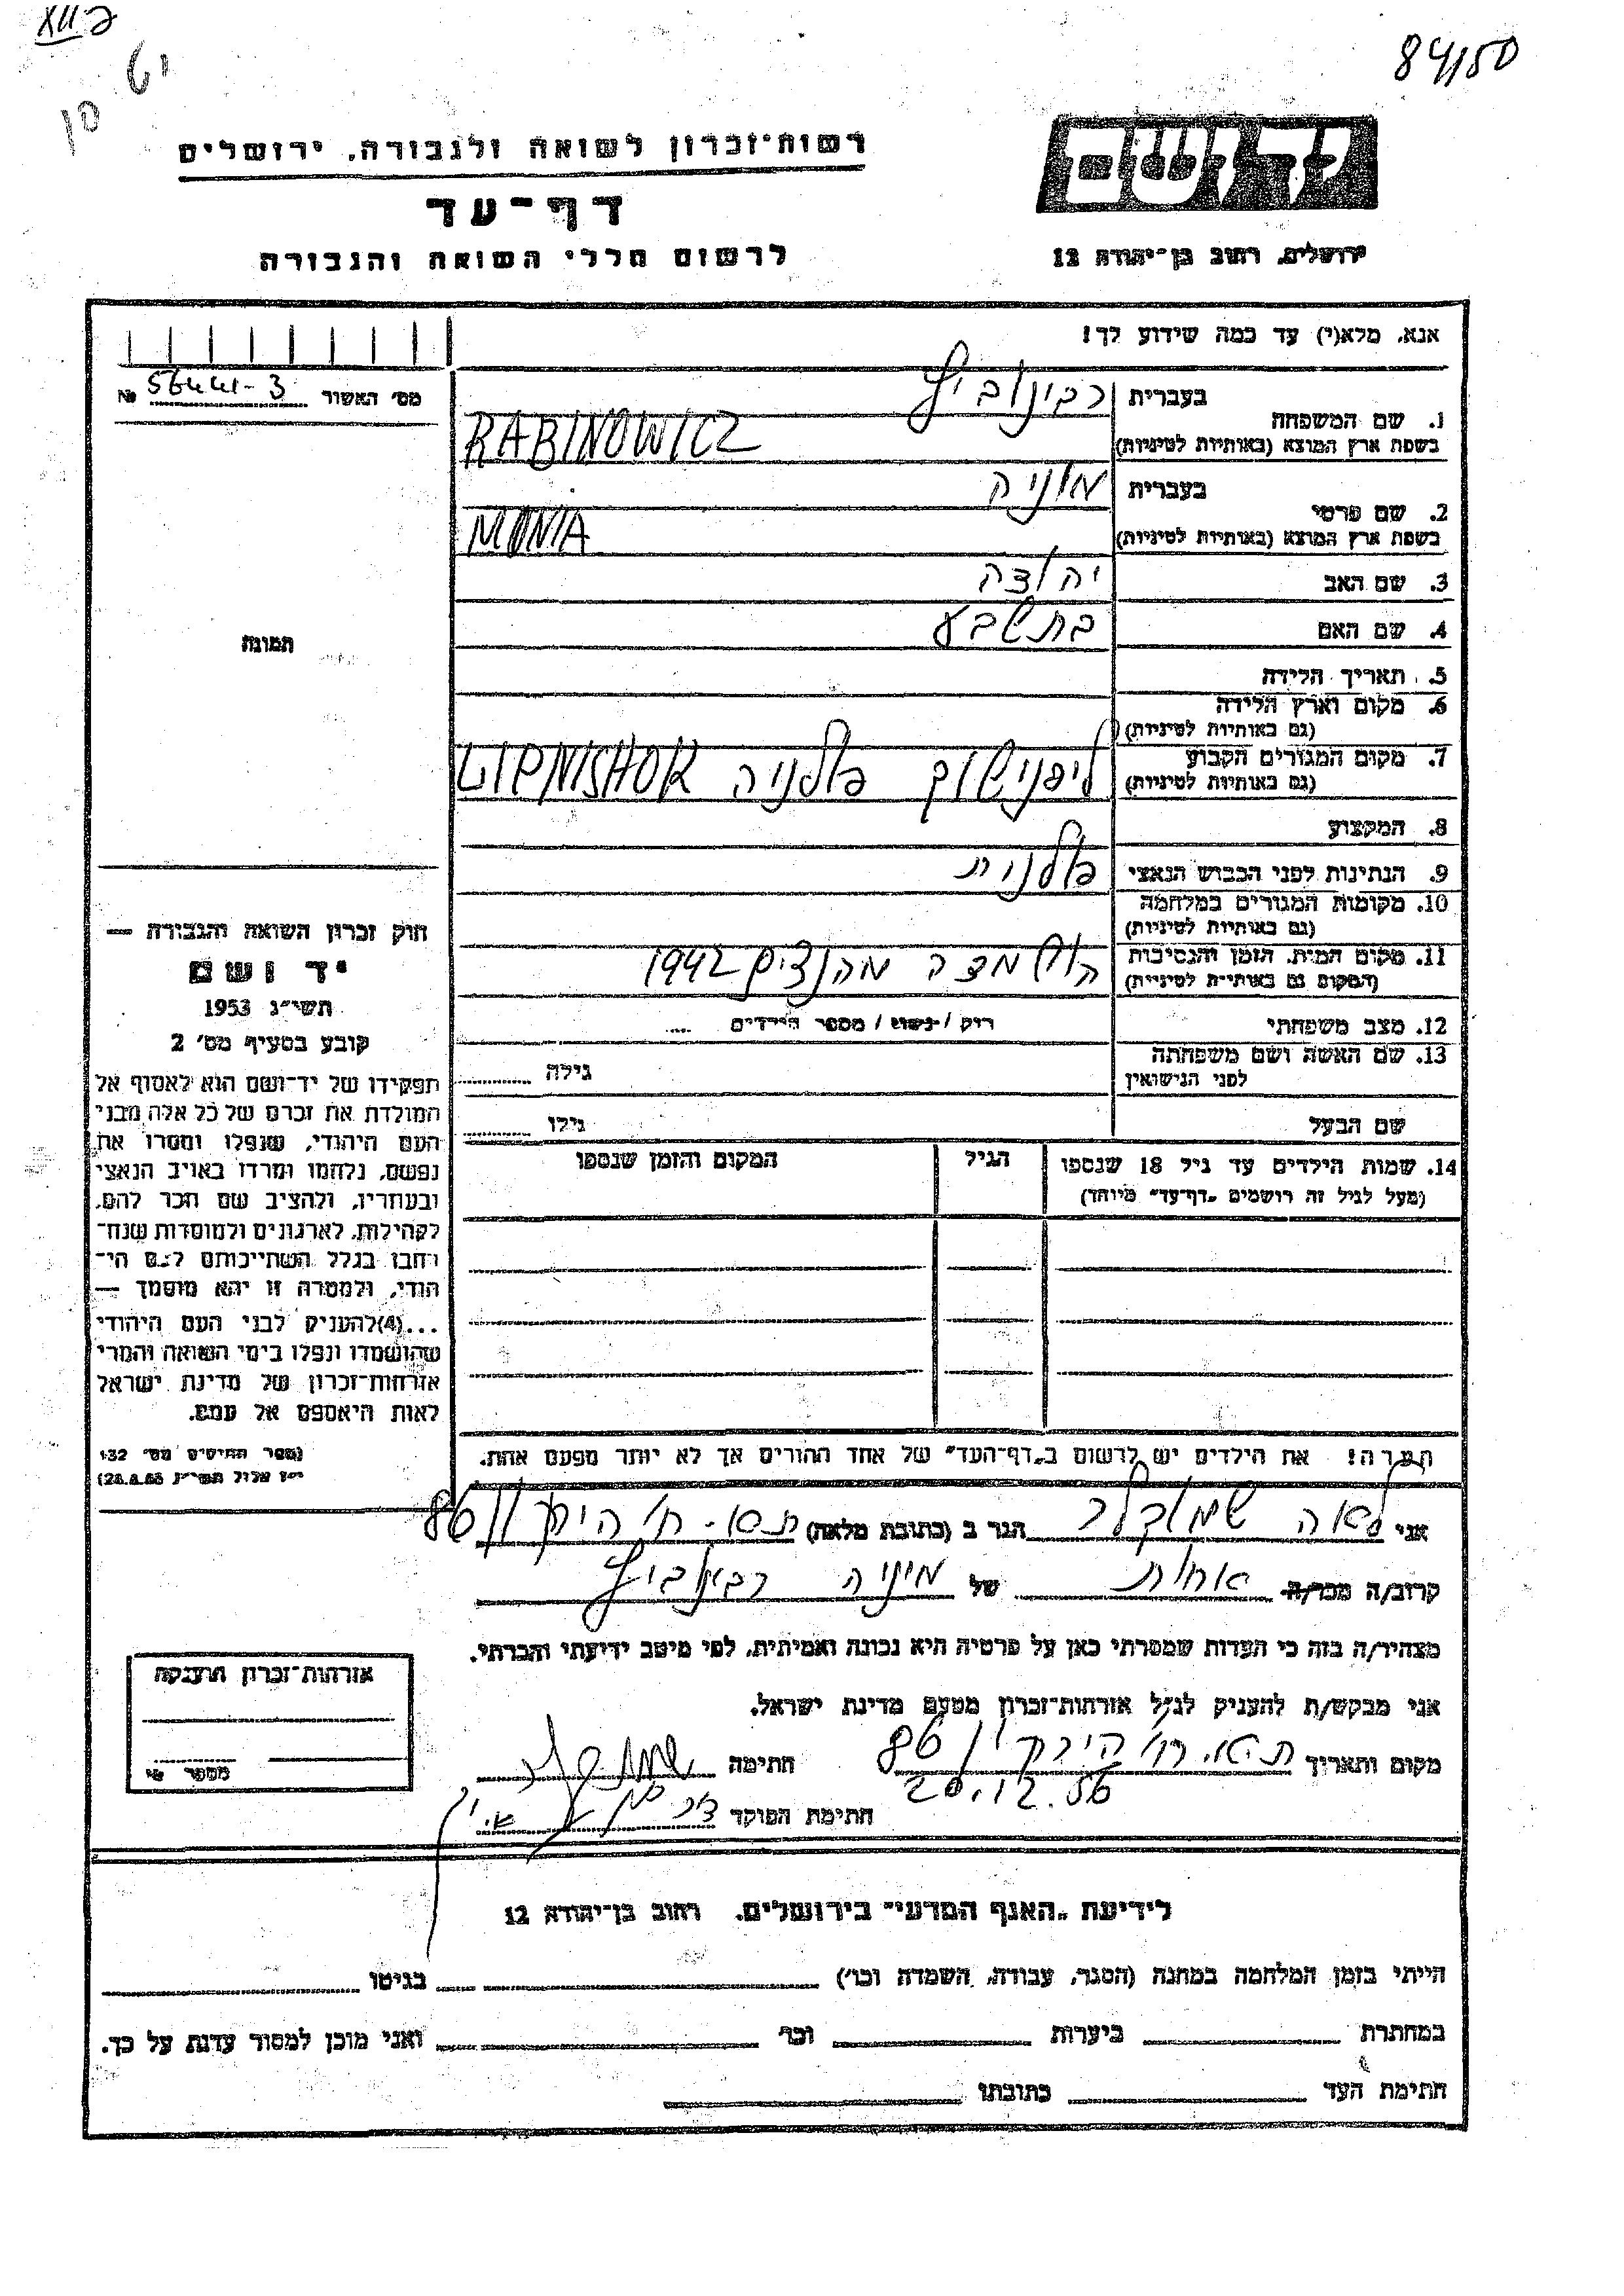 84/150
רשות־זכרון לשואה ולגבורה, ירושלים
דף־עד
לרשום חללי השואה והגבורה
יד ושם
ירושלים, רחוב בן־יהודה 12
אנא, מלא(י) עד כמה שידוע לך!
מס׳ האשור № 56441-3
1. שם המשפחה
בעברית רבינוביץ
בשפת ארץ המוצא (באותיות לטיניות) RABINOWICZ
2. שם פרטי
בעברית מוניה
בשפת ארץ המוצא (באותיות לטיניות) MONIA
3. שם האב יהודה
4. שם האם בתשבע
5. תאריך הלידה
6. מקום וארץ הלידה
(גם באותיות לטיניות)
7. מקום המגורים הקבוע
(גם באותיות לטיניות) ליפנישוק פולניה LIPNISHOK
8. המקצוע
9. הנתינות לפני הכבוש הנאצי פולנית
10. מקומות המגורים במלחמה
(גם באותיות לטיניות)
11. מקום המות, הזמן והנסיבות
(המקום גם באותיות לטיניות) 1942
12. מצב משפחתי רווק / נשוי / מספר הילדים
13. שם האשה ושם משפחתה
לפני הנישואין גילה
שם הבעל גילו
14. שמות הילדים עד גיל 18 שנספו
(מעל לגיל זה רושמים „דף־עד״ מיוחד)
הגיל
המקום והזמן שנספו
תמונה
חוק זכרון השואה והגבורה —
יד ושם
תשי״ג 1953
קובע בסעיף מס׳ 2
תפקידו של יד־ושם הוא לאסוף אל
המולדת את זכרם של כל אלה מבני
העם היהודי, שנפלו ומסרו את
נפשם, נלחמו ומרדו באויב הנאצי
ובעוזריו, ולהציב שם וזכר להם,
לקהילות, לארגונים ולמוסדות שנח־
רבו בגלל השתייכותם לעם הי־
הודי, ולמטרה זו יהא מוסמך —
...(4)להעניק לבני העם היהודי
שהושמדו ונפלו בימי השואה והמרי
אזרחות־זכרון של מדינת ישראל
לאות היאספם אל עמם.
(ספר החוקים מס׳ 132
י״ז אלול תשי״ג 28.8.53)
הערה! את הילדים יש לרשום ב„דף־העד״ של אחד ההורים אך לא יותר מפעם אחת.
אני לאה הגר ב (כתובת מלאה) ת״א. רח׳ הירקון 86
קרוב/ה מכר/ה אחות של מוניה רבינוביץ
מצהיר/ה בזה כי העדות שמסרתי כאן על פרטיה היא נכונה ואמיתית, לפי מיטב ידיעתי והכרתי.
אני מבקש/ת להעניק לנ״ל אזרחות־זכרון מטעם מדינת ישראל.
מקום ותאריך ת״א. רח׳ הירקון 86 חתימה
20.12.56
חתימת הפוקד
אזרחות־זכרון הוענקה
מספר
לידיעת „האגף המדעי״ בירושלים, רחוב בן־יהודה 12
הייתי בזמן המלחמה במחנה (הסגר, עבודה, השמדה וכו׳) בגיטו
במחתרת ביערות וכו׳ ואני מוכן למסור עדות על כך.
חתימת העד כתובתו